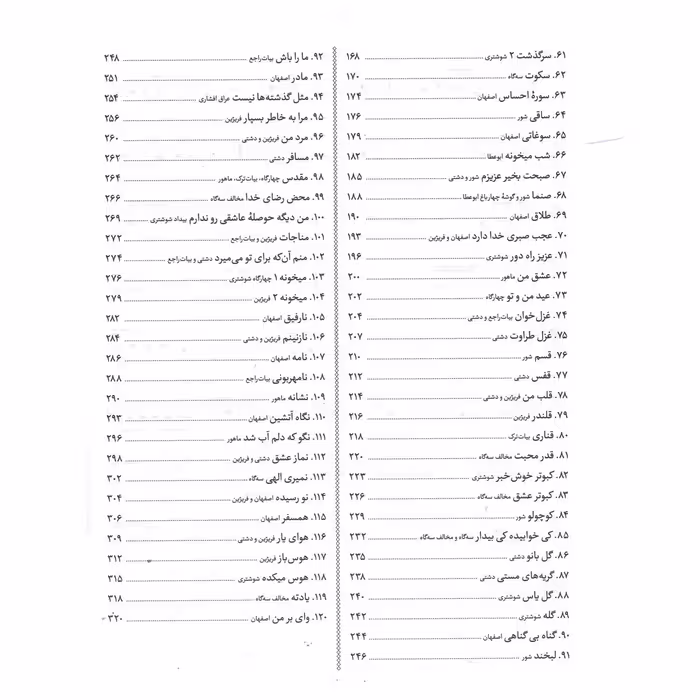 ۶۱. سرگذشت ۲ شوشتری ۱۶۸
۶۲. سکوت سه‌گاه ۱۷۰
۶۳. سورهٔ احساس اصفهان ۱۷۴
۶۴. ساقی شور ۱۷۶
۶۵. سوغاتی اصفهان ۱۷۹
۶۶. شب میخونه ابوعطا ۱۸۲
۶۷. صبحت بخیر عزیزم شور و دشتی ۱۸۵
۶۸. صنما شور و گوشهٔ چهارباغ ابوعطا ۱۸۸
۶۹. طلاق اصفهان ۱۹۰
۷۰. عجب صبری خدا دارد اصفهان و قریژین ۱۹۳
۷۱. عزیز راه دور شوشتری ۱۹۶
۷۲. عشق من ماهور ۲۰۰
۷۳. عید من و تو چهارگاه ۲۰۲
۷۴. غزل‌خوان بیات‌راجع و دشتی ۲۰۴
۷۵. غزل طراوت دشتی ۲۰۷
۷۶. قسم شور ۲۱۰
۷۷. قفس دشتی ۲۱۲
۷۸. قلب من قریژین و دشتی ۲۱۴
۷۹. قلندر قریژین ۲۱۶
۸۰. قناری بیات‌ترک ۲۱۸
۸۱. قدر محبت مخالف سه‌گاه ۲۲۰
۸۲. کبوتر خوش‌خبر شوشتری ۲۲۳
۸۳. کبوتر عشق مخالف سه‌گاه ۲۲۶
۸۴. کوچولو شور ۲۲۹
۸۵. کی خوابیده کی بیدار سه‌گاه و مخالف سه‌گاه ۲۳۲
۸۶. گل بانو دشتی ۲۳۵
۸۷. گریه‌های مستی دشتی ۲۳۸
۸۸. گل یاس شوشتری ۲۴۰
۸۹. گله شوشتری ۲۴۲
۹۰. گناه بی گناهی اصفهان ۲۴۴
۹۱. لبخند شور ۲۴۶
۹۲. ما را باش بیات‌راجع ۲۴۸
۹۳. مادر اصفهان ۲۵۱
۹۴. مثل گذشته‌ها نیست عراق افشاری ۲۵۴
۹۵. مرا به خاطر بسپار قریژین ۲۵۶
۹۶. مرد من قریژین و دشتی ۲۶۰
۹۷. مسافر دشتی ۲۶۲
۹۸. مقدس چهارگاه، بیات‌ترک، ماهور ۲۶۴
۹۹. محض رضای خدا مخالف سه‌گاه ۲۶۶
۱۰۰. من دیگه حوصلهٔ عاشقی رو ندارم بیداد شوشتری ۲۶۹
۱۰۱. مناجات قریژین و بیات‌راجع ۲۷۲
۱۰۲. منم آن‌که برای تو می‌میرد دشتی و بیات‌راجع ۲۷۴
۱۰۳. میخونه ۱ چهارگاه شوشتری ۲۷۶
۱۰۴. میخونه ۲ قریژین ۲۷۹
۱۰۵. نارفیق اصفهان ۲۸۲
۱۰۶. نازنینم قریژین و دشتی ۲۸۴
۱۰۷. نامه اصفهان ۲۸۶
۱۰۸. نامهربونی بیات‌راجع ۲۸۸
۱۰۹. نشانه ماهور ۲۹۰
۱۱۰. نگاه آتشین اصفهان ۲۹۳
۱۱۱. نگو که دلم آب شد ماهور ۲۹۶
۱۱۲. نماز عشق دشتی و قریژین ۲۹۸
۱۱۳. نمیری الهی سه‌گاه ۳۰۲
۱۱۴. نو رسیده اصفهان و قریژین ۳۰۴
۱۱۵. همسفر اصفهان ۳۰۶
۱۱۶. هوای یار قریژین و دشتی ۳۰۹
۱۱۷. هوس‌باز قریژین ۳۱۲
۱۱۸. هوس میکده شوشتری ۳۱۵
۱۱۹. یادته مخالف سه‌گاه ۳۱۸
۱۲۰. وای بر من اصفهان ۳۲۰